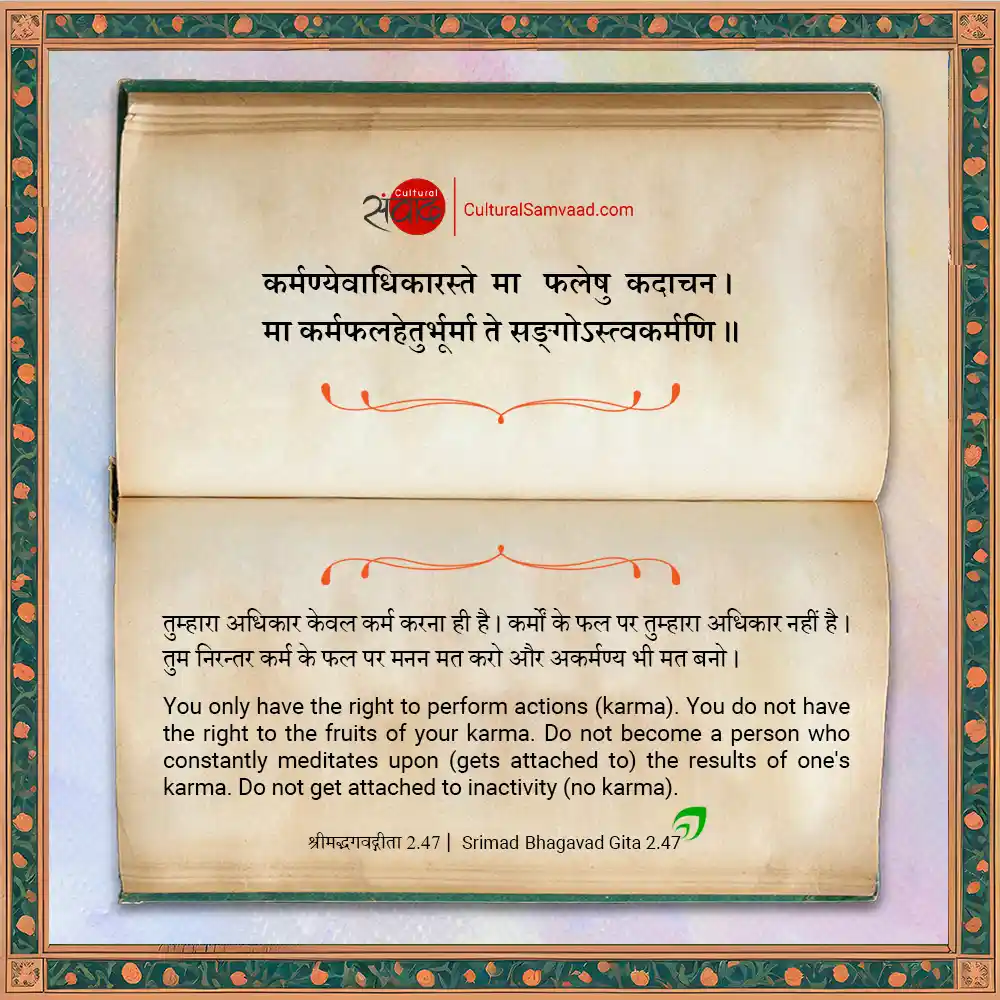 Cultural
संवाद
CulturalSamvaad.com
कर्मण्येवाधिकारस्ते मा फलेषु कदाचन।
मा कर्मफलहेतुर्भूर्मा ते सङ्गोऽस्त्वकर्मणि॥
तुम्हारा अधिकार केवल कर्म करना ही है। कर्मों के फल पर तुम्हारा अधिकार नहीं है।
तुम निरन्तर कर्म के फल पर मनन मत करो और अकर्मण्य भी मत बनो।
You only have the right to perform actions (karma). You do not have
the right to the fruits of your karma. Do not become a person who
constantly meditates upon (gets attached to) the results of one's
karma. Do not get attached to inactivity (no karma).
श्रीमद्भगवद्गीता 2.47 | Srimad Bhagavad Gita 2.47